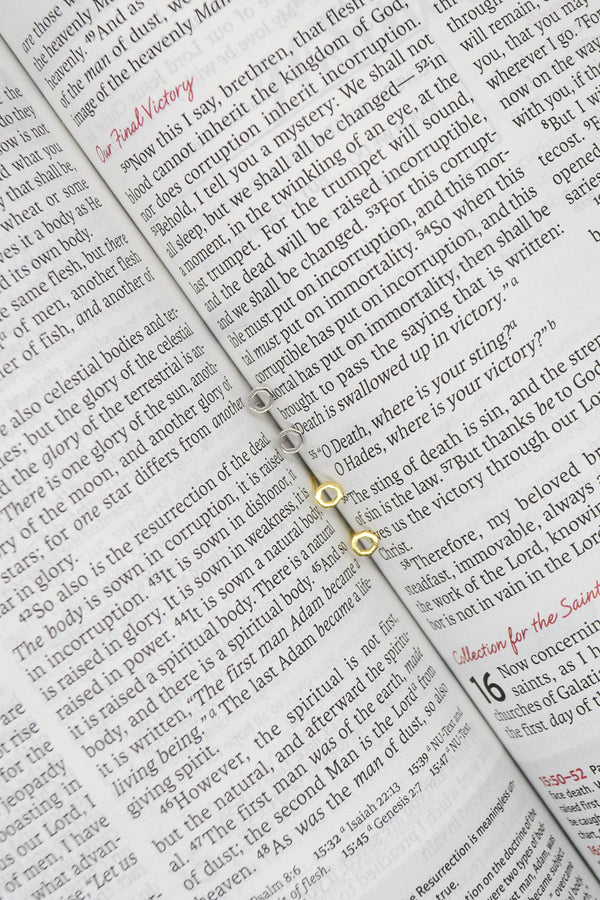 the
do they
ow is not
d what you
y that shall be
wheat or some
ves it a body as He
d its own body.
e same flesh, but there
of men, another flesh
er of fish, and another of
e also celestial bodies and ter-
es; but the glory of the celestial
the glory of the terrestrial is an-
There is one glory of the sun, anoth-
ry of the moon, and another glory of
stars; for one star differs from another
ar in glory.
42So also is the resurrection of the dead.
The body is sown in corruption, it is raised
in incorruption. 43It is sown in dishonor, it
is raised in glory. It is sown in weakness, it is
raised in power. 44It is sown a natural body,
it is raised a spiritual body. There is a natural
body, and there is a spiritual body. 45And so
it is written, "The first man Adam became a
living being."a The last Adam became a life-
giving spirit.
46However, the spiritual is not first,
but the natural, and afterward the spiritu-
al. 47The first man was of the earth, made
of dust; the second Man is the Lorda from
heaven. 48As was the man of dust, so also
Psalm 8:6 15:32 a Isaiah 22:13 15:39 a NU-Text and
it of flesh. 15:45 a Genesis 2:7 15:47 a NU-Text
are
ot rise
for the
jeopardy
boasting in
us our Lord, I
of men, I have
what advan
se, "Let us
are those w
the heavenly Man
heavenly. 49And as
of the man of dust, we
image of the heavenly Man
Our Final Victory
50Now this I say, brethren, that flesh
blood cannot inherit the kingdom of God,
nor does corruption inherit incorruption.
51Behold, I tell you a mystery: We shall not
all sleep, but we shall all be changed—52in
a moment, in the twinkling of an eye, at the
last trumpet. For the trumpet will sound,
and the dead will be raised incorruptible,
and we shall be changed. 53For this corrupt-
ible must put on incorruption, and this mor-
tal must put on immortality. 54So when this
corruptible has put on incorruption, and this
mortal has put on immortality, then shall be
brought to pass the saying that is written:
"Death is swallowed up in victory."a
55"O Death, where is your sting?a
O Hades, where is your victory?"b
56The sting of death is sin, and the stren
of sin is the law. 57But thanks be to God
es us the victory through our Lo
Christ.
58Therefore, my beloved br
steadfast, immovable, always a
the work of the Lord, knowin
bor is not in vain in the Lord
Collection for the Saint
16 Now concerning
saints, as I h
churches of Galati
the first day of th
through
will remain,
you, that you may
wherever I go. 7For
now on the way
with you, if the
8But I wi
tecost. 9
opened
saries
15:50–52 Pa
face death. W
raised first
be caugh
chart,
Resurrection is meaningless un
true.